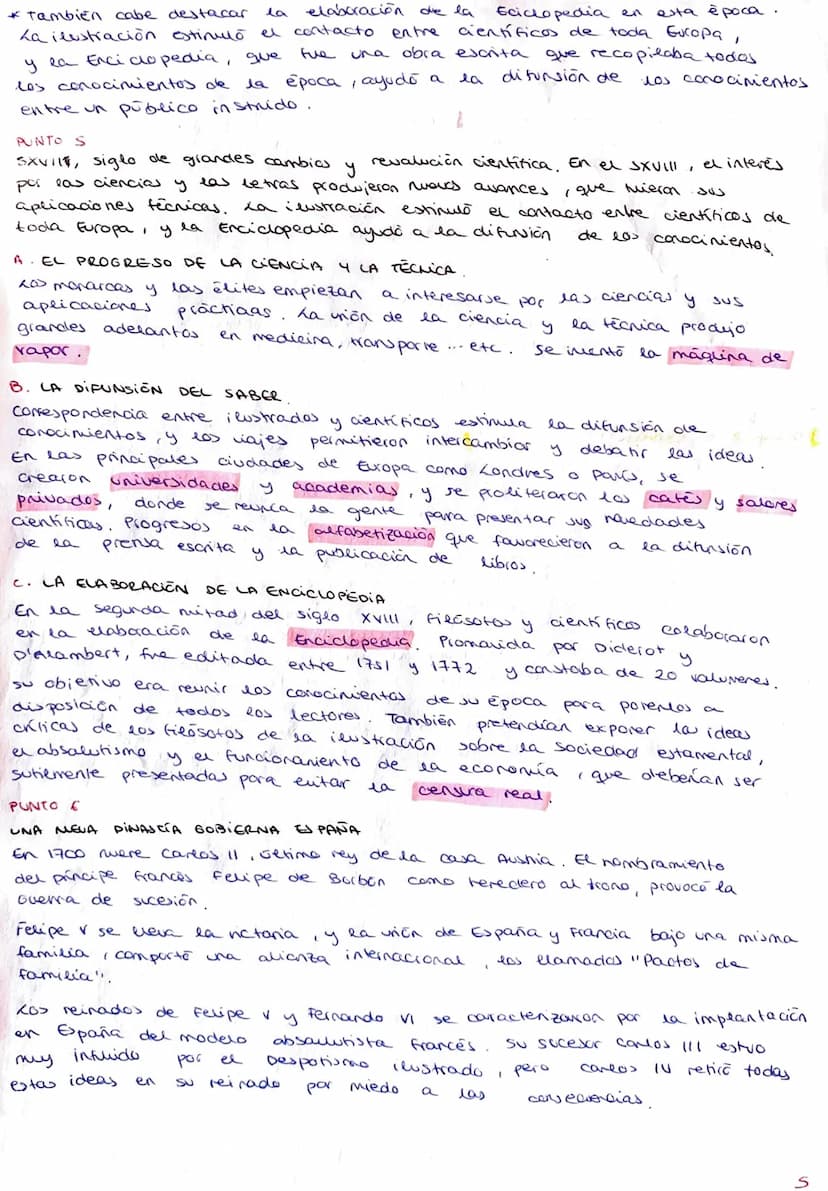 * También cabe destacar la elaboración de la Eciclopedia en esta época.
La ilustración estimuló el contacto entre científicos de toda Europa,
y la Enciclopedia, que fue una obra escrita que recopilaba todos
los conocimientos de la época, ayudó a la difunsión de los conocimientos
entre un público instruido.
PUNTO 5
SXVIII, siglo de grandes cambios y revolución científica. En el SXVIII, el interés
por las ciencias y las letras produjeron nuevos avances, que tuvieron sus
aplicaciones técnicas. La ilustración estimuló el contacto entre científicos de
toda Europa, y la Enciclopedia ayudó a la difunsión de los conocimientos.
A. EL PROGRESO DE LA CIENCIA Y LA TÉCNICA.
Los monarcas y las élites empiezan a interesarse por las ciencias y sus
aplicaciones prácticas. La unión de la ciencia y la técnica produjo
grandes adelantos en medicina, transporte... etc. Se inventó la máquina de
vapor.
B. LA DIFUNSIÓN DEL SABER.
Correspondencia entre ilustrados y científicos estimula la difunsión de
conocimientos, y los viajes permitieron intercambiar y debatir las ideas.
En las principales ciudades de Europa como Londres o París, se
crearon universidades y academias, y se proliferaron los cafés y salones
privados, donde se reunía la gente para presentar sus novedades
científicas. Progresos en la alfabetización que favorecieron a la difunsión
de la prensa escrita y la publicación de libros.
C. LA ELABORACIÓN DE LA ENCICLOPEDIA
En la segunda mitad del siglo XVIII, filósofos y científicos colaboraron
en la elaboración de la Enciclopedia. Promovida por Diderot y
D'Alambert, fue editada entre 1751 y 1772 y constaba de 20 volúmenes.
Su objetivo era reunir los conocimientos de su época para ponerlos a
disposición de todos los lectores. También pretendían exponer las ideas
críticas de los filósofos de la ilustración sobre la sociedad estamental,
el absolutismo y el funcionamiento de la economía, que deberían ser
sutilmente presentadas para evitar la censura real.
PUNTO 6
UNA NUEVA DINASTÍA GOBIERNA ESPAÑA
En 1700 muere Carlos II, último rey de la casa Austria. El nombramiento
del príncipe francés Felipe de Borbón como heredero al trono, provocó la
Guerra de sucesión.
Felipe V se lleva la victoria, y la unión de España y Francia bajo una misma
familia, comportó una alianza internacional, los llamados "Pactos de
familia".
Los reinados de Felipe V y Fernando VI se caracterizaron por la implantación
en España del modelo absolutista francés. Su sucesor Carlos III estuvo
muy influido por el Despotismo ilustrado, pero Carlos IV retiró todas
estas ideas en su reinado por miedo a las consecuencias.
5